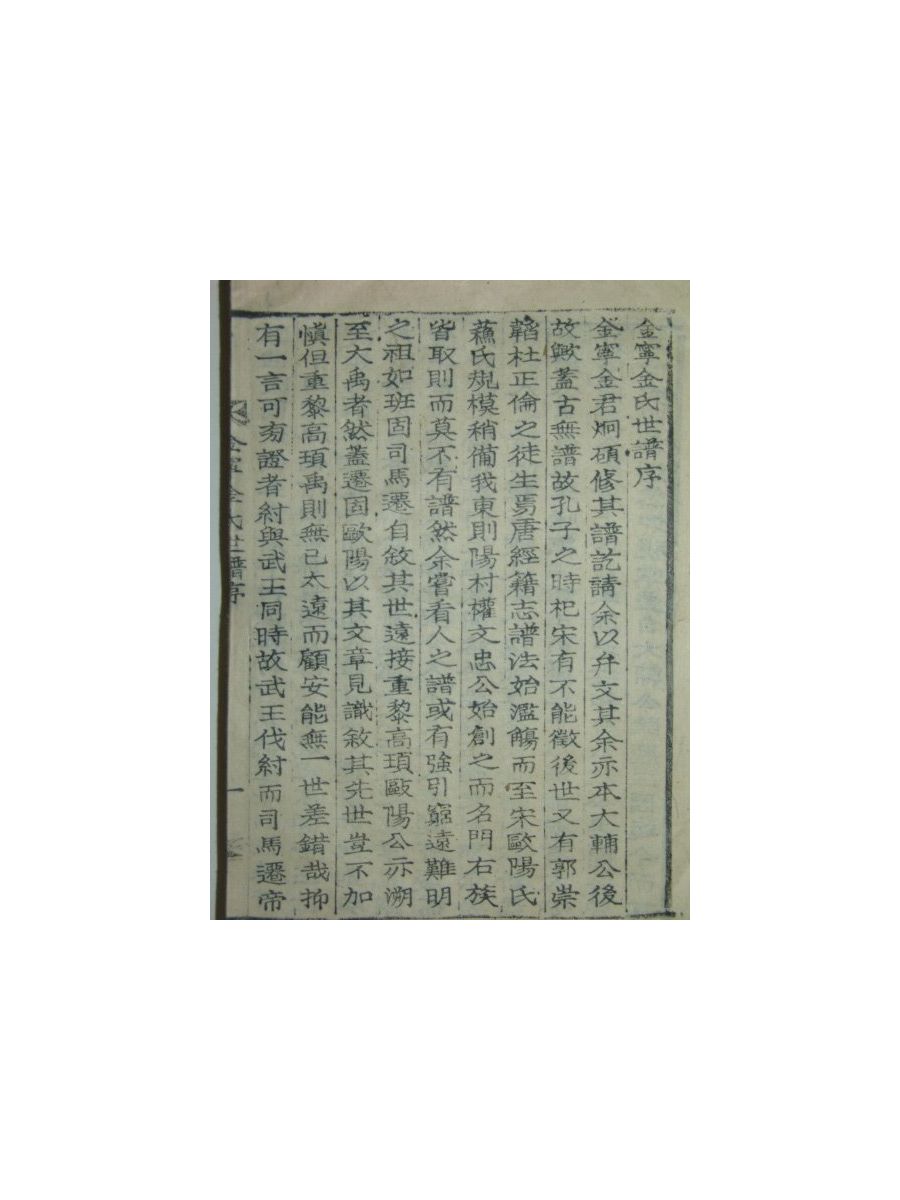 金寧金氏世譜序
金寧金君炯碩修其譜訖請余以弁文其余亦本大輔公後
故歟蓋古無譜故孔子之時杞宋有不能徵後世又有郭崇
韜杜正倫之徒生焉唐經籍志譜法始濫觴而至宋歐陽氏
蘓氏規模稍備我東則陽村權文忠公始創之而名門右族
皆取則而莫不有譜然余嘗看人之譜或有強引竆遠難明
之祖如班固司馬遷自敘其世遠接重黎高頊歐陽公亦溯
至大禹者然蓋遷固歐陽以其文章見識敘其先世豈不加
愼但重黎高頊禹則無已太遠而顧安能無一世差錯哉抑
有一言可旁證者紂與武王同時故武王伐紂而司馬遷帝
金寧金氏世譜序 一